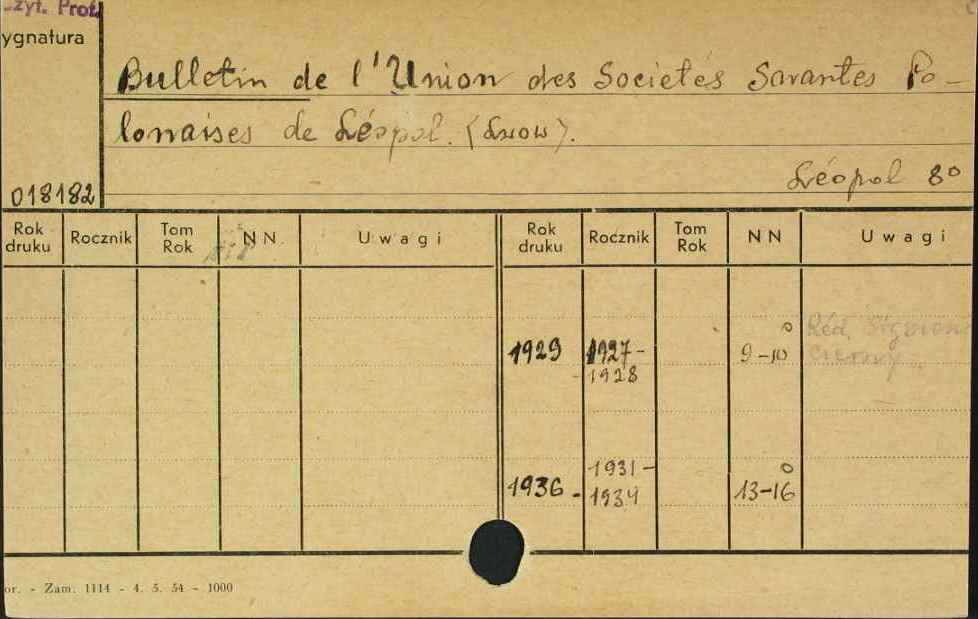 Czyt. Prof.
ygnatura
Bulletin de l'Union des Societés Savantes Po-
lonaises de Léopol. (Lwow).
Léopol 8º
018182
Rok druku Rocznik Tom Rok NN Uwagi Rok druku Rocznik Tom Rok NN Uwagi
1929 1927-1928 º 9-10 Réd.
1936 - 1931-1934 º 13-16
or. - Zam. 1114 - 4. 5. 54 - 1000